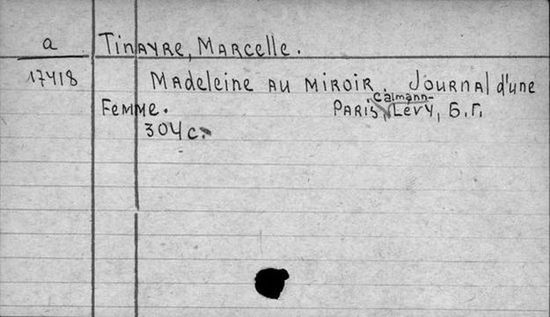 a Tinayre, Marcelle.
17418 Madeleine au miroir. Journal d'une
Femme. Paris, Calmann-Levy, Б.Г.
304 c.